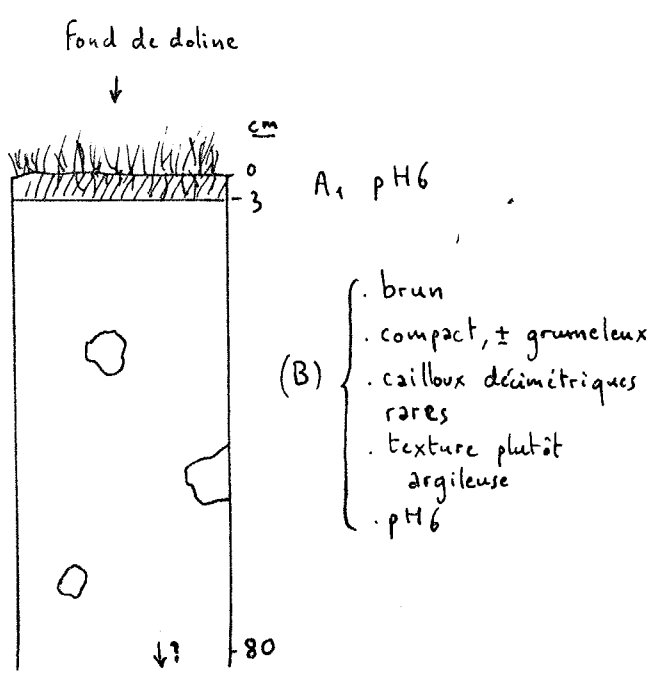 Fond de doline
cm
0
3
A1 pH6
(B)
. brun
. compact, ± grumeleux
. cailloux décimétriques
rares
. texture plutôt
argileuse
. pH6
?
80